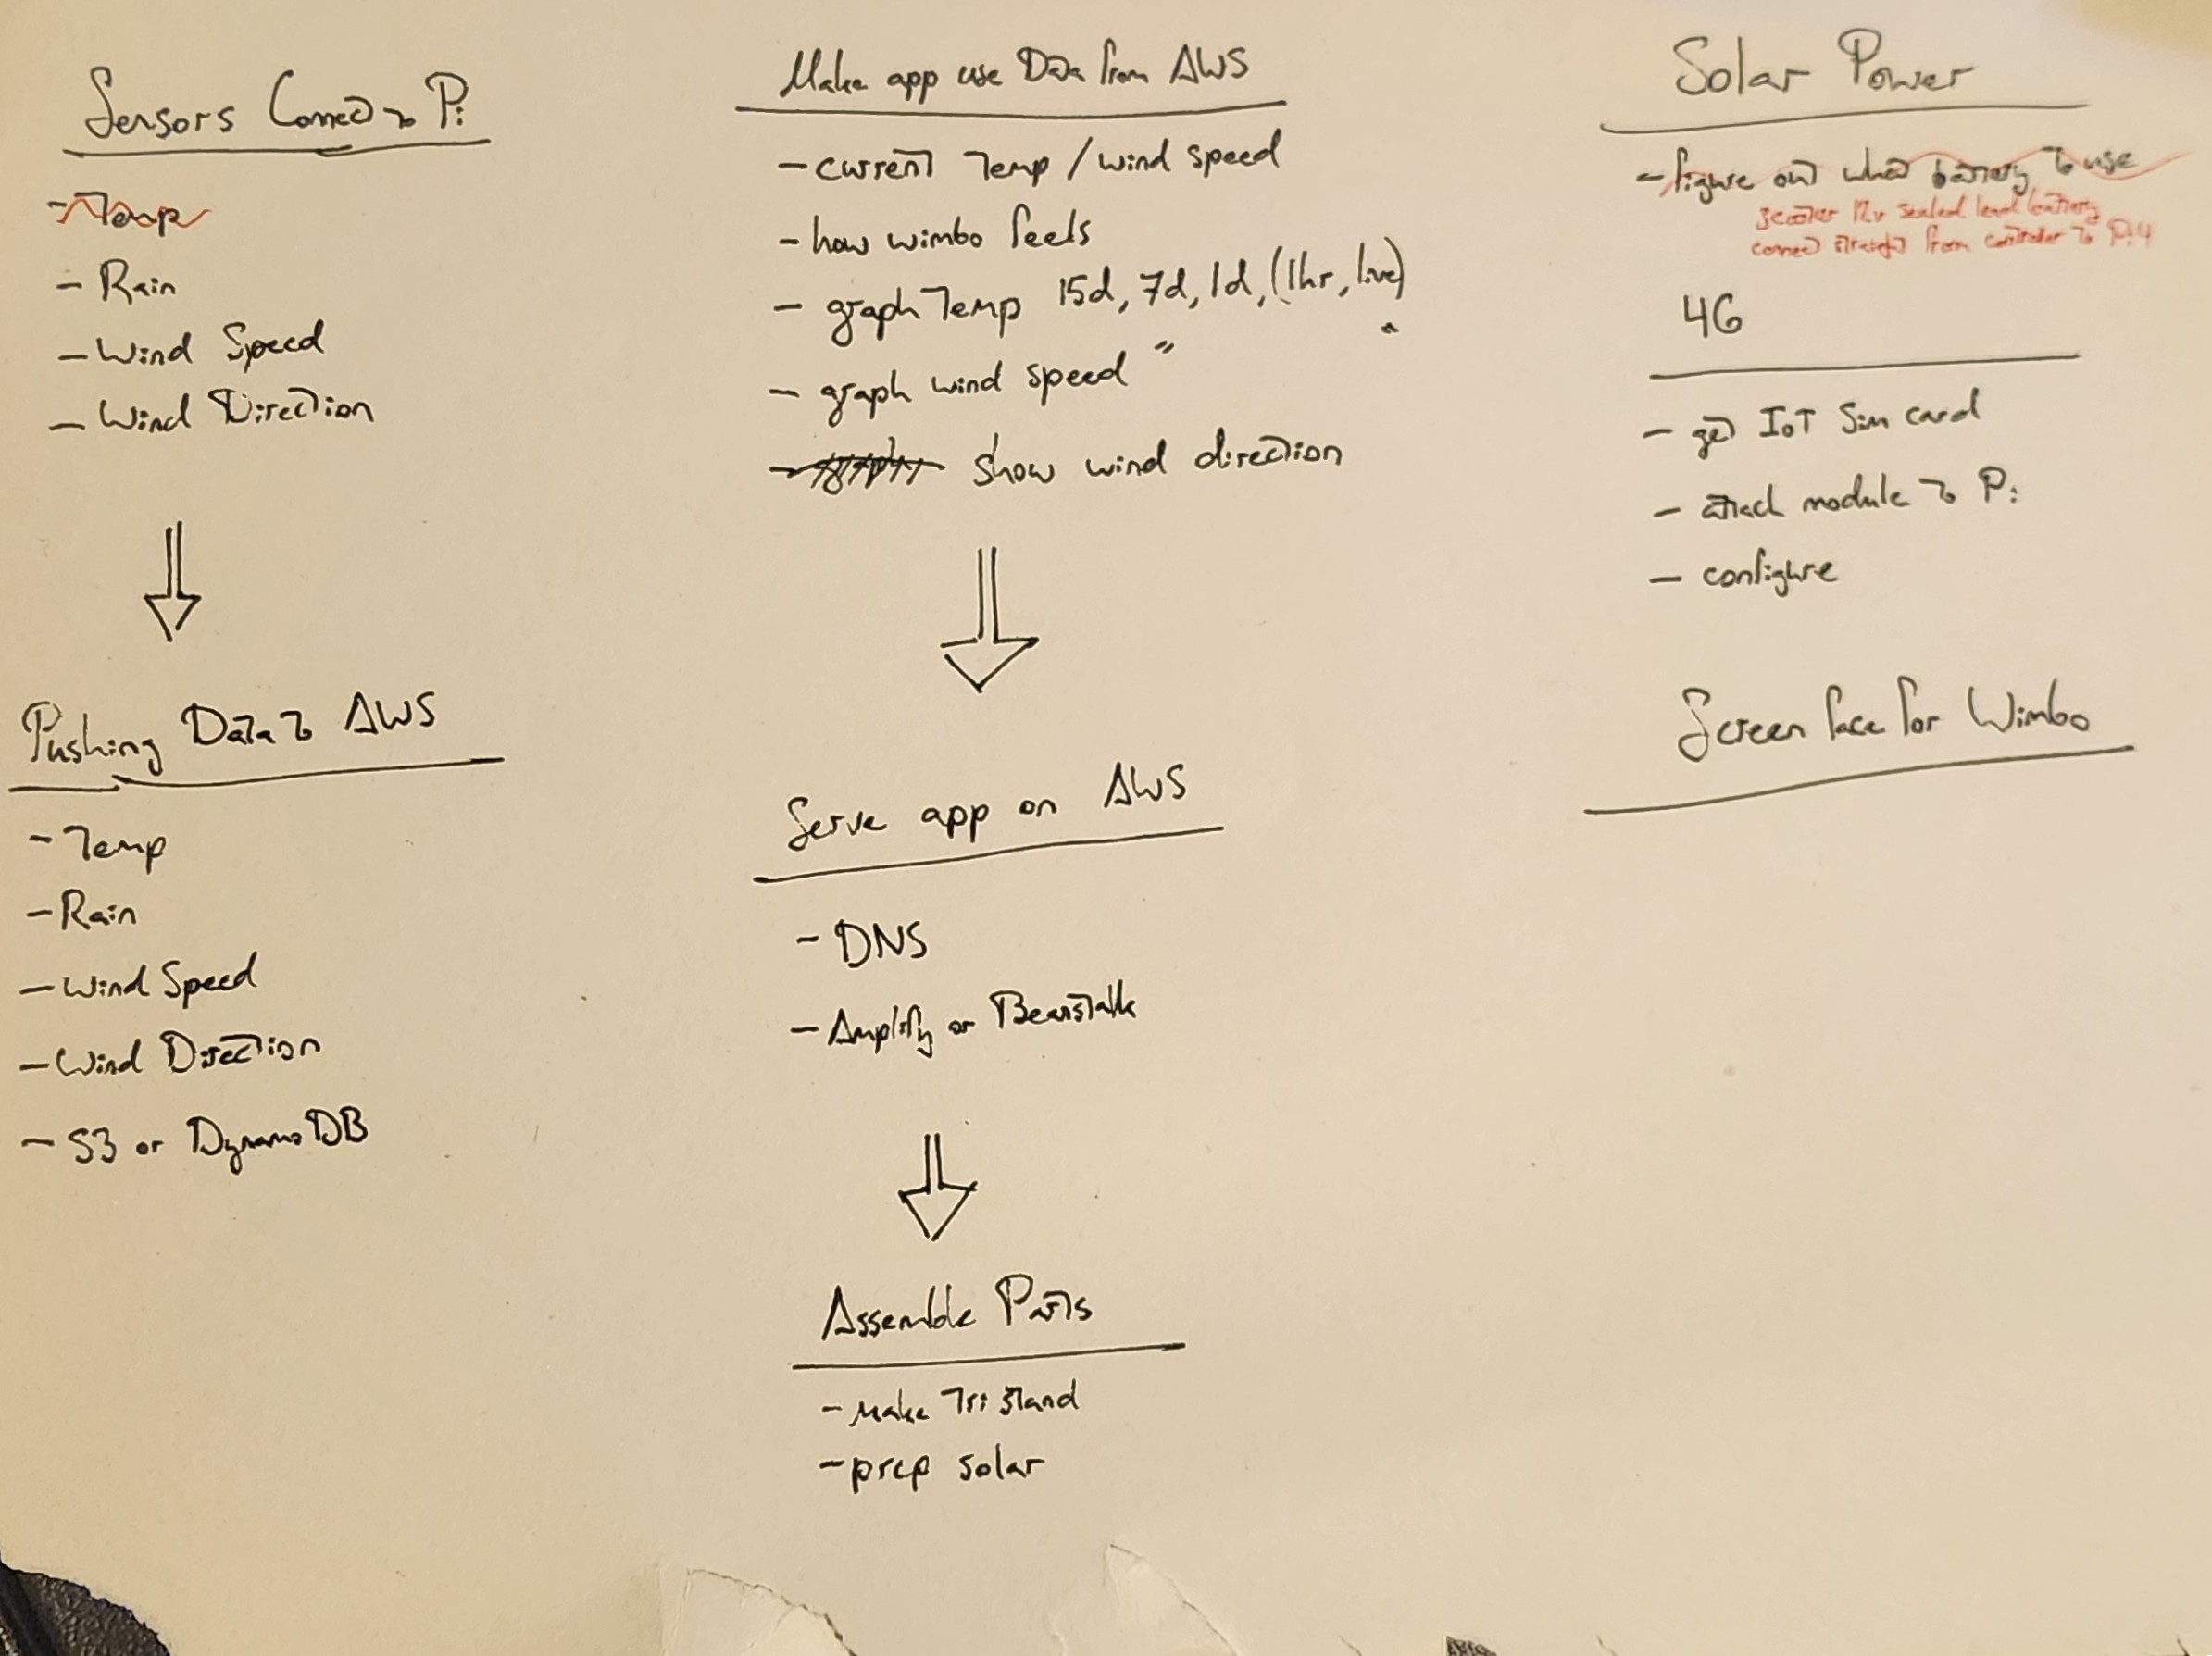 Sensors Connect to Pi
- Temp
- Rain
- Wind Speed
- Wind Direction
Pushing Data to AWS
- Temp
- Rain
- Wind Speed
- Wind Direction
- S3 or DynamoDB
Make app use Data from AWS
- current Temp / wind speed
- how wimbo feels
- graph Temp 15d, 7d, 1d, (1hr, live)
- graph wind speed " "
- show wind direction
Serve app on AWS
- DNS
- Amplify or Beanstalk
Assemble Parts
- Make Tri stand
- prep solar
Solar Power
- figure out what battery to use
scooter 12v sealed lead battery
connect straight from controller to Pi 4
4G
- get IoT Sim card
- attach module to Pi
- configure
Screen face for Wimbo